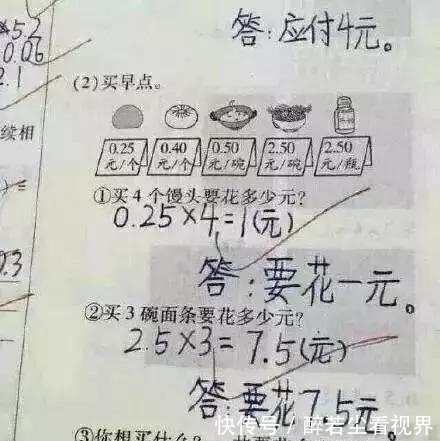 ×5.2
0.06
2.1
答:应付4元。
(2)买早点。
续相
0.25 0.40 0.50 2.50 2.50
元/个 元/个 元/碗 元/碗 元/瓶
①买4个馒头要花多少元?
0.25×4=1(元)
0.3
答:要花一元。
②买3碗面条要花多少元?
2.5×3=7.5(元)
答要花7.5元。
快传号/醉若尘看视界
③你想买什么?